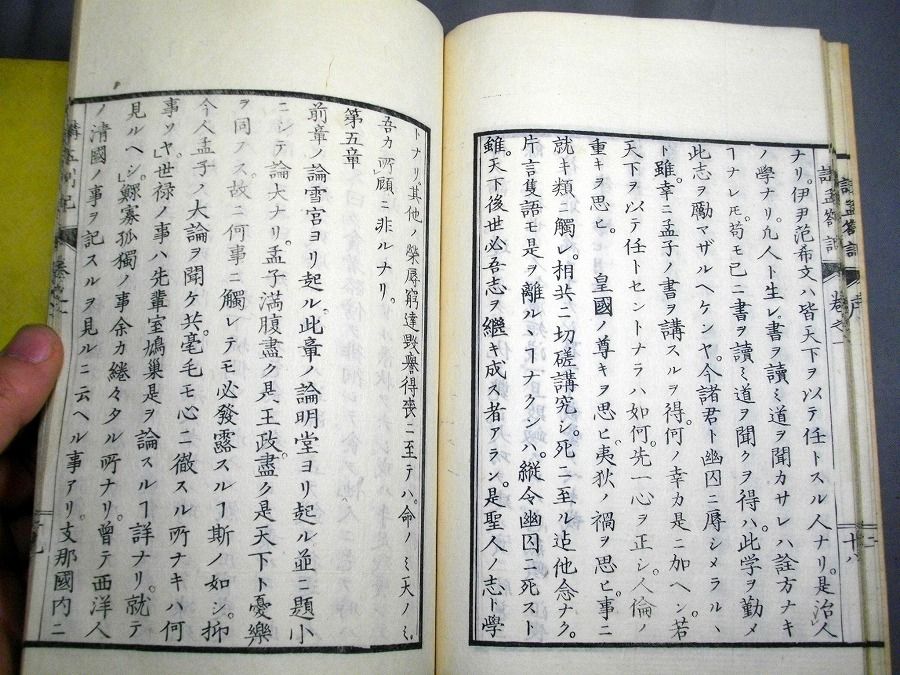 ナリ。伊尹范希文ハ皆天下ヲ以テ任トスル人ナリ。是治人
ノ學ナリ。凡人ト生レ。書ヲ讀ミ道ヲ聞カサレハ詮方ナキ
ヿナレ𪜈。苟モ已ニ書ヲ讀ミ道ヲ聞クヲ得ハ。此学ヲ勤メ
此志ヲ勵マザルヘケンヤ。今諸君ト幽囚ニ辱シメラルヽ
ト雖。幸ニ孟子ノ書ヲ講スルヲ得。何ノ幸カ是ニ加ヘン。若
天下ヲ以テ任トセントナラハ如何。先一心ヲ正シ人倫ノ
重キヲ思ヒ。 皇國ノ尊キヲ思ヒ。夷狄ノ禍ヲ思ヒ。事ニ
就キ類ニ觸レ。相共ニ切磋講究シ。死ニ至ル迠他念ナク。
片言隻語モ是ヲ離ルヽヿナクンハ。縱令幽囚ニ死スト
雖。天下後世必吾志ヲ繼キ成ス者アラン。是聖人ノ志ト學
トナリ。其他ノ榮辱窮達毀譽得喪ニ至テハ。命ノミ天ノミ。
吾カ所顧ニ非ルナリ。
第五章
前章ノ論雪宮ヨリ起ル。此章ノ論明堂ヨリ起ル。並ニ題小
ニシテ論大ナリ。孟子滿腹盡ク是王政。盡ク是天下ト憂樂
ヲ同フス。故ニ何事ニ觸レテモ必發露スルヿ斯ノ如シ。抑
今人孟子ノ大論ヲ聞ケ共。毫毛モ心ニ徹スル所ナキハ何
事ソヤ。世禄ノ事ハ先輩室鳩巢是ヲ論スルヿ詳ナリ。就テ
見ルヘシ。鰥寡孤獨ノ事余カ綣々タル所ナリ。曾テ西洋人
ノ清國ノ事ヲ記スルヲ見ルニ云ヘル事アリ。支那國内ニ